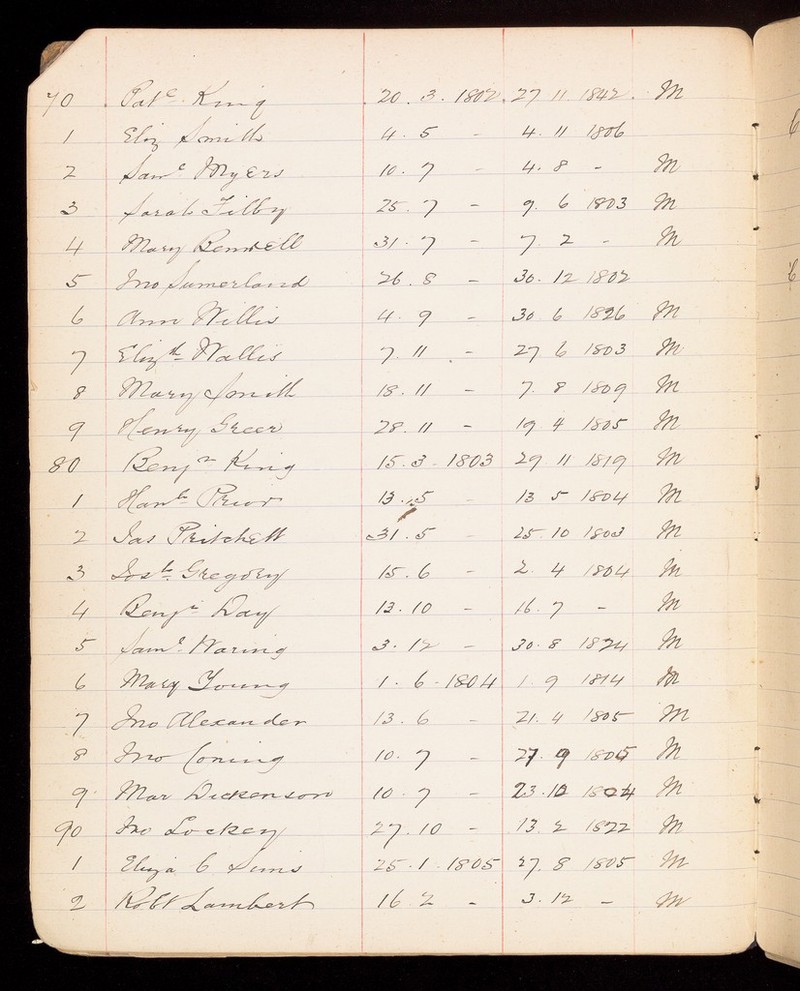 70 Patc King 20. 3. 1802. 27 11. 1842. M
1 Eliz Smith 4. 5 - 4. 11 1806
2 Saml Myers 10. 7 - 4. 8 - M
3 Sarah Tilby 25. 7 - 9. 6 1803 M
4 Mary Bennell 31. 7 - 7 2 - M
5 Jno Sumerland 26. 8 - 30. 12 1802
6 Ann Willis 4. 9 - 30 6 1826 M
7 Elizth Wallis 7. 11 - 27 6 1803 M
8 Mary Smith 18. 11 - 7. 8 1809 M
9 Henry Greer 28. 11 - 19 4 1805 M
80 Benjn King 15. 3 - 1803 29 11 1819 M
1 Hanh Prior 13. 5 - 13 5 1804 M
2 Jas Pritchett 31. 5 - 25. 10 1803 M
3 Josh Gregory 15. 6 - 2. 4 1804 M
4 Benjn Day 13. 10 - 16. 7 - M
5 Saml Waring 3. 12 - 30. 8 1824 M
6 Mary Young 1. 6 - 1804 1. 9 1814 M
7 Jno Alexander 13. 6 - 21. 4 1805 M
8 Jno Coning 10. 7 - 27. 9 1805 M
9 Mar Dickenson 10. 7 - 23. 10 1804 M
90 Jno Lockey 27. 10 - 13. 2 1822 M
1 Eliza C Sims 25. 1. 1805 27. 8 1805 M
2 Robt Lambert 16. 2 - 3. 12 - M